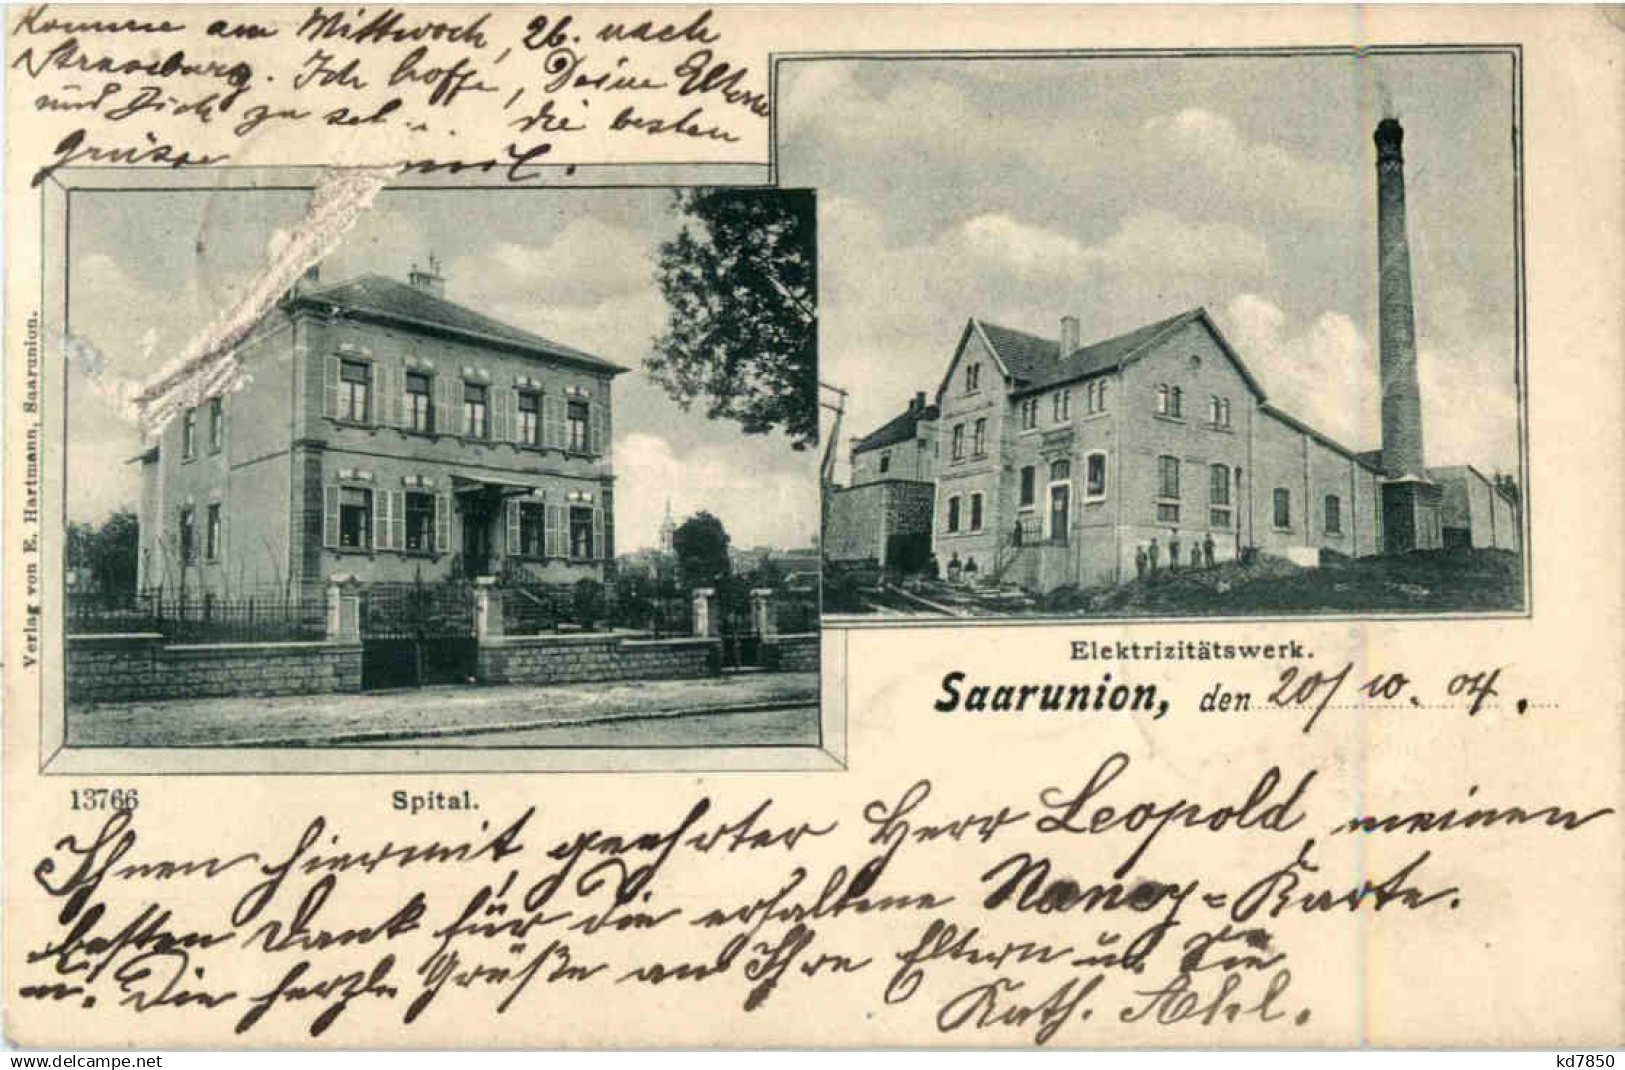 Komme am Mittwoch, 26. nach
Strassburg. Ich hoffe, Deine Eltern
und Dich zu seh... die besten
Grüsse
Verlag von E. Hartmann, Saarunion.
Elektrizitätswerk.
Saarunion, den 20/10. 04.
13766
Spital.
Ihnen hiermit, geehrter Herr Leopold, meinen
besten Dank für die erhaltene Nancy-Karte.
u. die herzl. Grüße an Ihre Eltern u. Sie
Kath. Ahl.
www.delcampe.net
kd7850